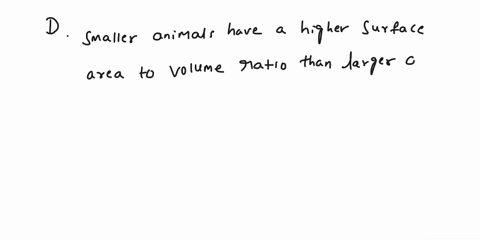 D. Smaller animals have a higher surface
area to volume ratio than larger